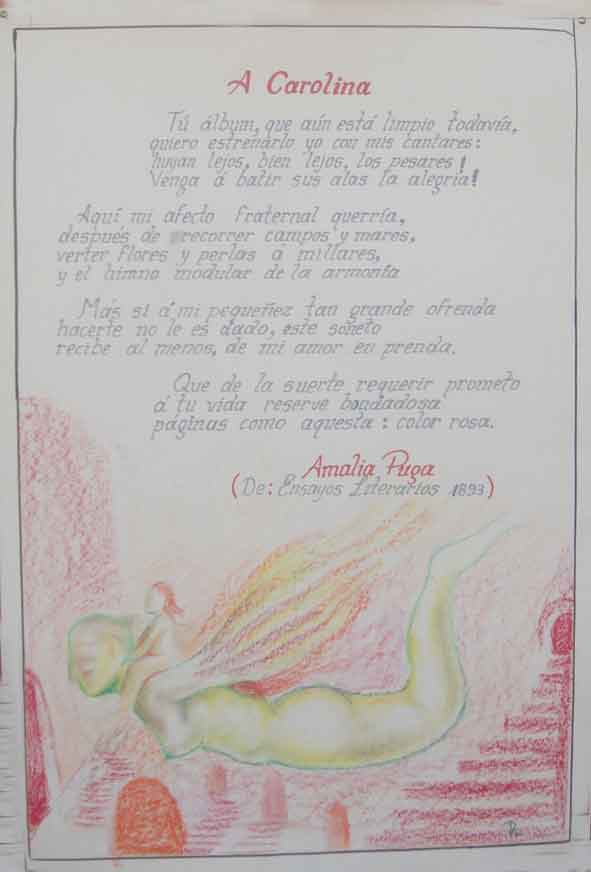 A Carolina
Tú álbum, que aún está limpio todavía,
quiero estrenarlo yo con mis cantares:
huyan lejos, bien lejos, los pesares!
Venga á batir sus alas la alegría!
Aquí mi afecto fraternal querría,
después de recorrer campos y mares,
verter flores y perlas á millares,
y el himno modular de la armonía
Más si á mi pequeñez tan grande ofrenda
hacerte no le es dado, este soneto
recibe al menos, de mi amor en prenda.
Que de la suerte requerir prometo
á tu vida reserve bondadosa
páginas como aquesta: color rosa.
Amalia Puga
(De: Ensayos Literarios 1893)